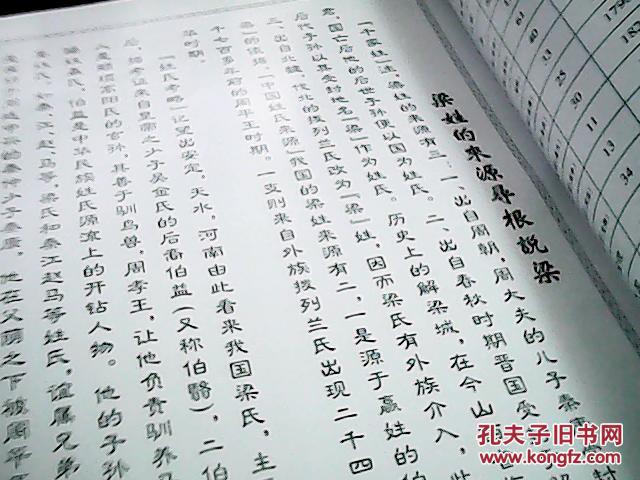 梁姓的来源寻根说梁
家姓"注，梁姓的来源有三：一、出自周朝，周大夫的儿子秦康
君，国亡后他的后世子孙便以国为姓氏。二、出自春秋时期晋国受
后代子孙以其受封地名"梁"作为姓氏。历史上的解梁城，在今山
三、出自北魏，代北的拨列兰氏改为"梁"姓，因而梁氏有外族介入，此
"中国姓氏来源"我国的梁姓来源有二，一是源于嬴姓的伯
千七百多年前的周平王时期。一支则来自外族拨列兰氏出现二千四
年时期。
"姓氏考略"记望出安定，天水，河南由此看来我国梁氏，主
后，据考证来自皇帝之少子昊金氏的后裔伯益（又称伯翳），二伯
高阳氏的玄孙，其善于驯鸟兽，周孝王，让他负责驯养马
氏，伯益是中华民族姓氏源流上的开钻人物。他的子孙
赵马等，梁氏和秦江赵马等姓氏，谊属兄弟
秦仲少子秦康，他在父荫之下被周平王
61
40
33
11
13
34
孔夫子旧书网
www.kongfz.com